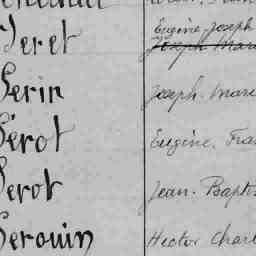 Jeret Eugène Joseph
Joseph Mari
Serin Joseph. Mari
Sérot Eugène. Fra
Serot Jean. Bapt
Serouin Hector Charl